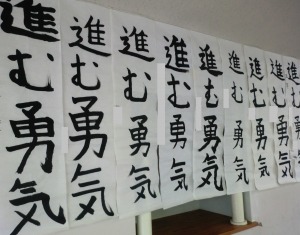 進む勇気
進む勇気
進む勇気
進む勇気
進む勇気
進む勇気
進む勇気
進む勇気
進む勇気